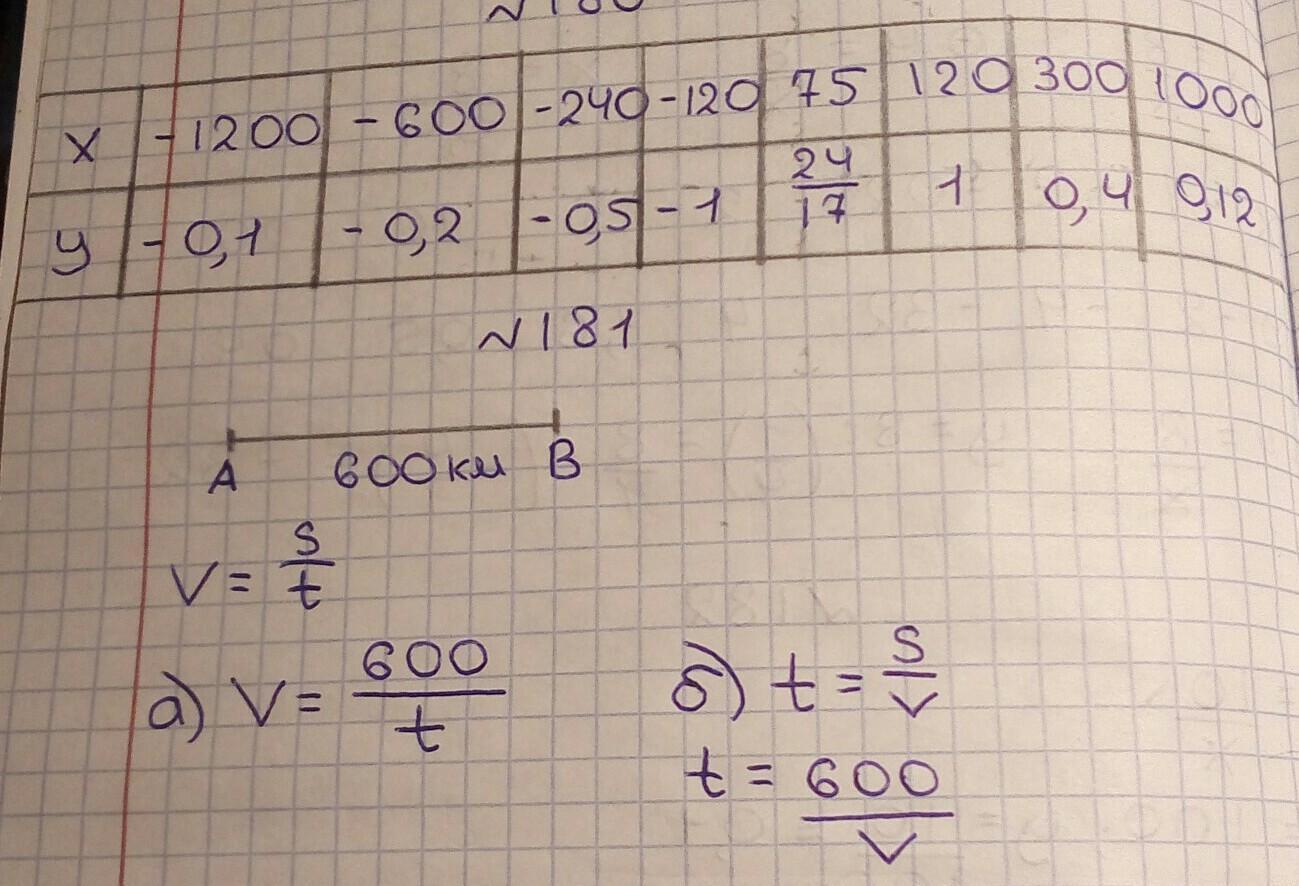 №180
x -1200 -600 -240 -120 75 120 300 1000
y -0,1 -0,2 -0,5 -1 24/17 1 0,4 0,12
№181
A 600км B
V = s/t
а) V = 600/t
б) t = s/V
t = 600/V